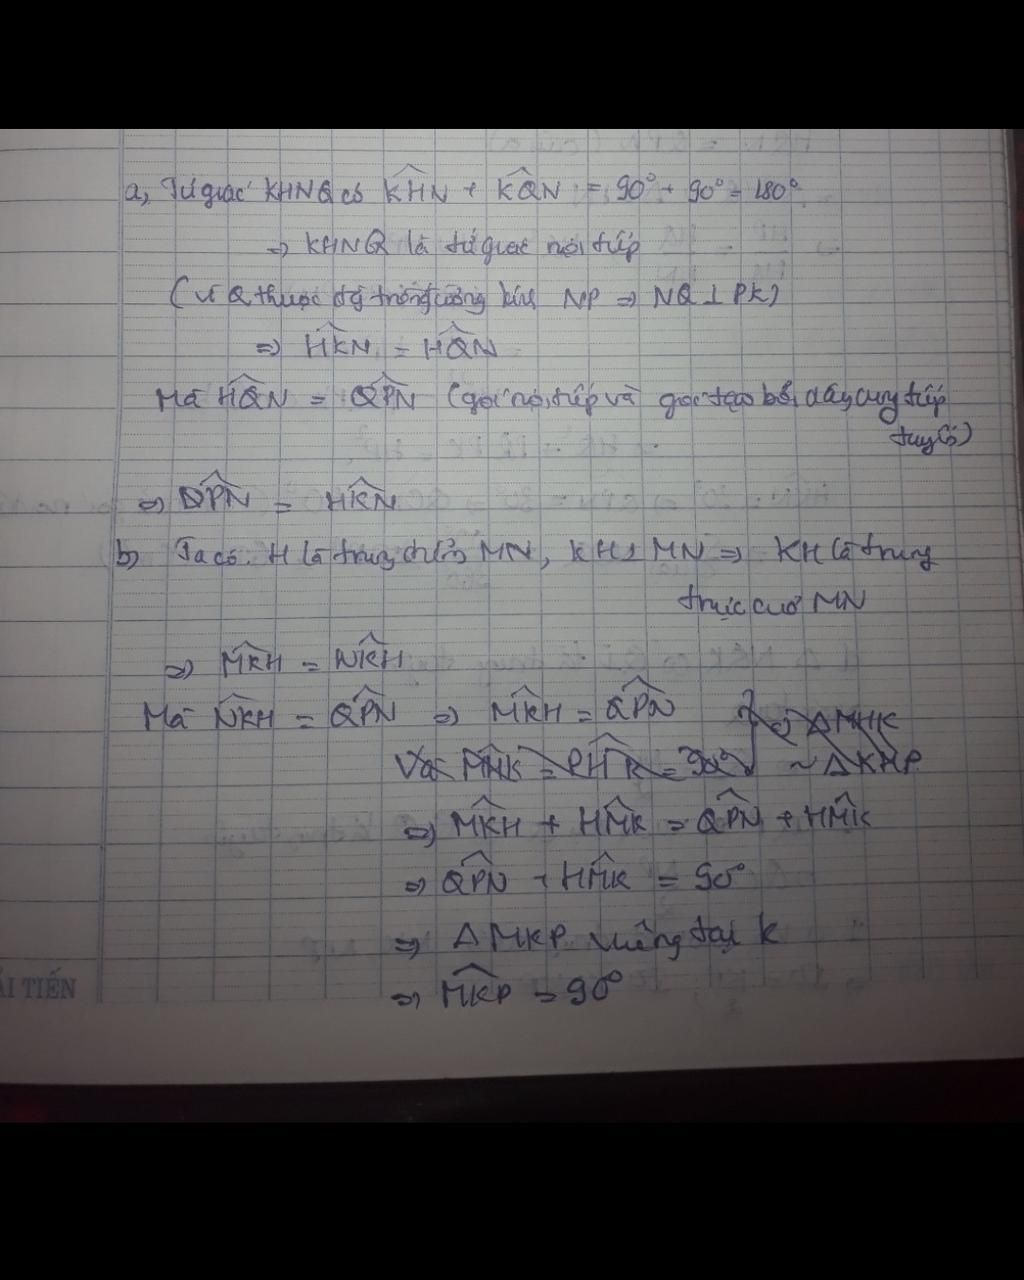 a, Tứ giác KHNQ có KĤN + KQ̂N = 90° + 90° = 180°
=> KHNQ là tứ giác nội tiếp
(vì Q thuộc đg tròn đường kính NP => NQ ⊥ PK)
=> HK̂N = HQ̂N
Mà HQ̂N = QP̂N (góc nội tiếp và góc tạo bởi dây cung tiếp
tuyến)
=> QP̂N = HK̂N
b) Ta có. H là trung điểm MN, KH ⊥ MN => KH là trung
trực của MN
=> MK̂H = NK̂H
Mà NK̂H = QP̂N => MK̂H = QP̂N } => ΔMHK
Và MĤK = PĤK = 90° ~ ΔKHP
=> MK̂H + HM̂K = QP̂N + HM̂K
=> QP̂N + HM̂K = 90°
=> ΔMKP vuông tại K
=> MK̂P = 90°
ẢI TIẾN